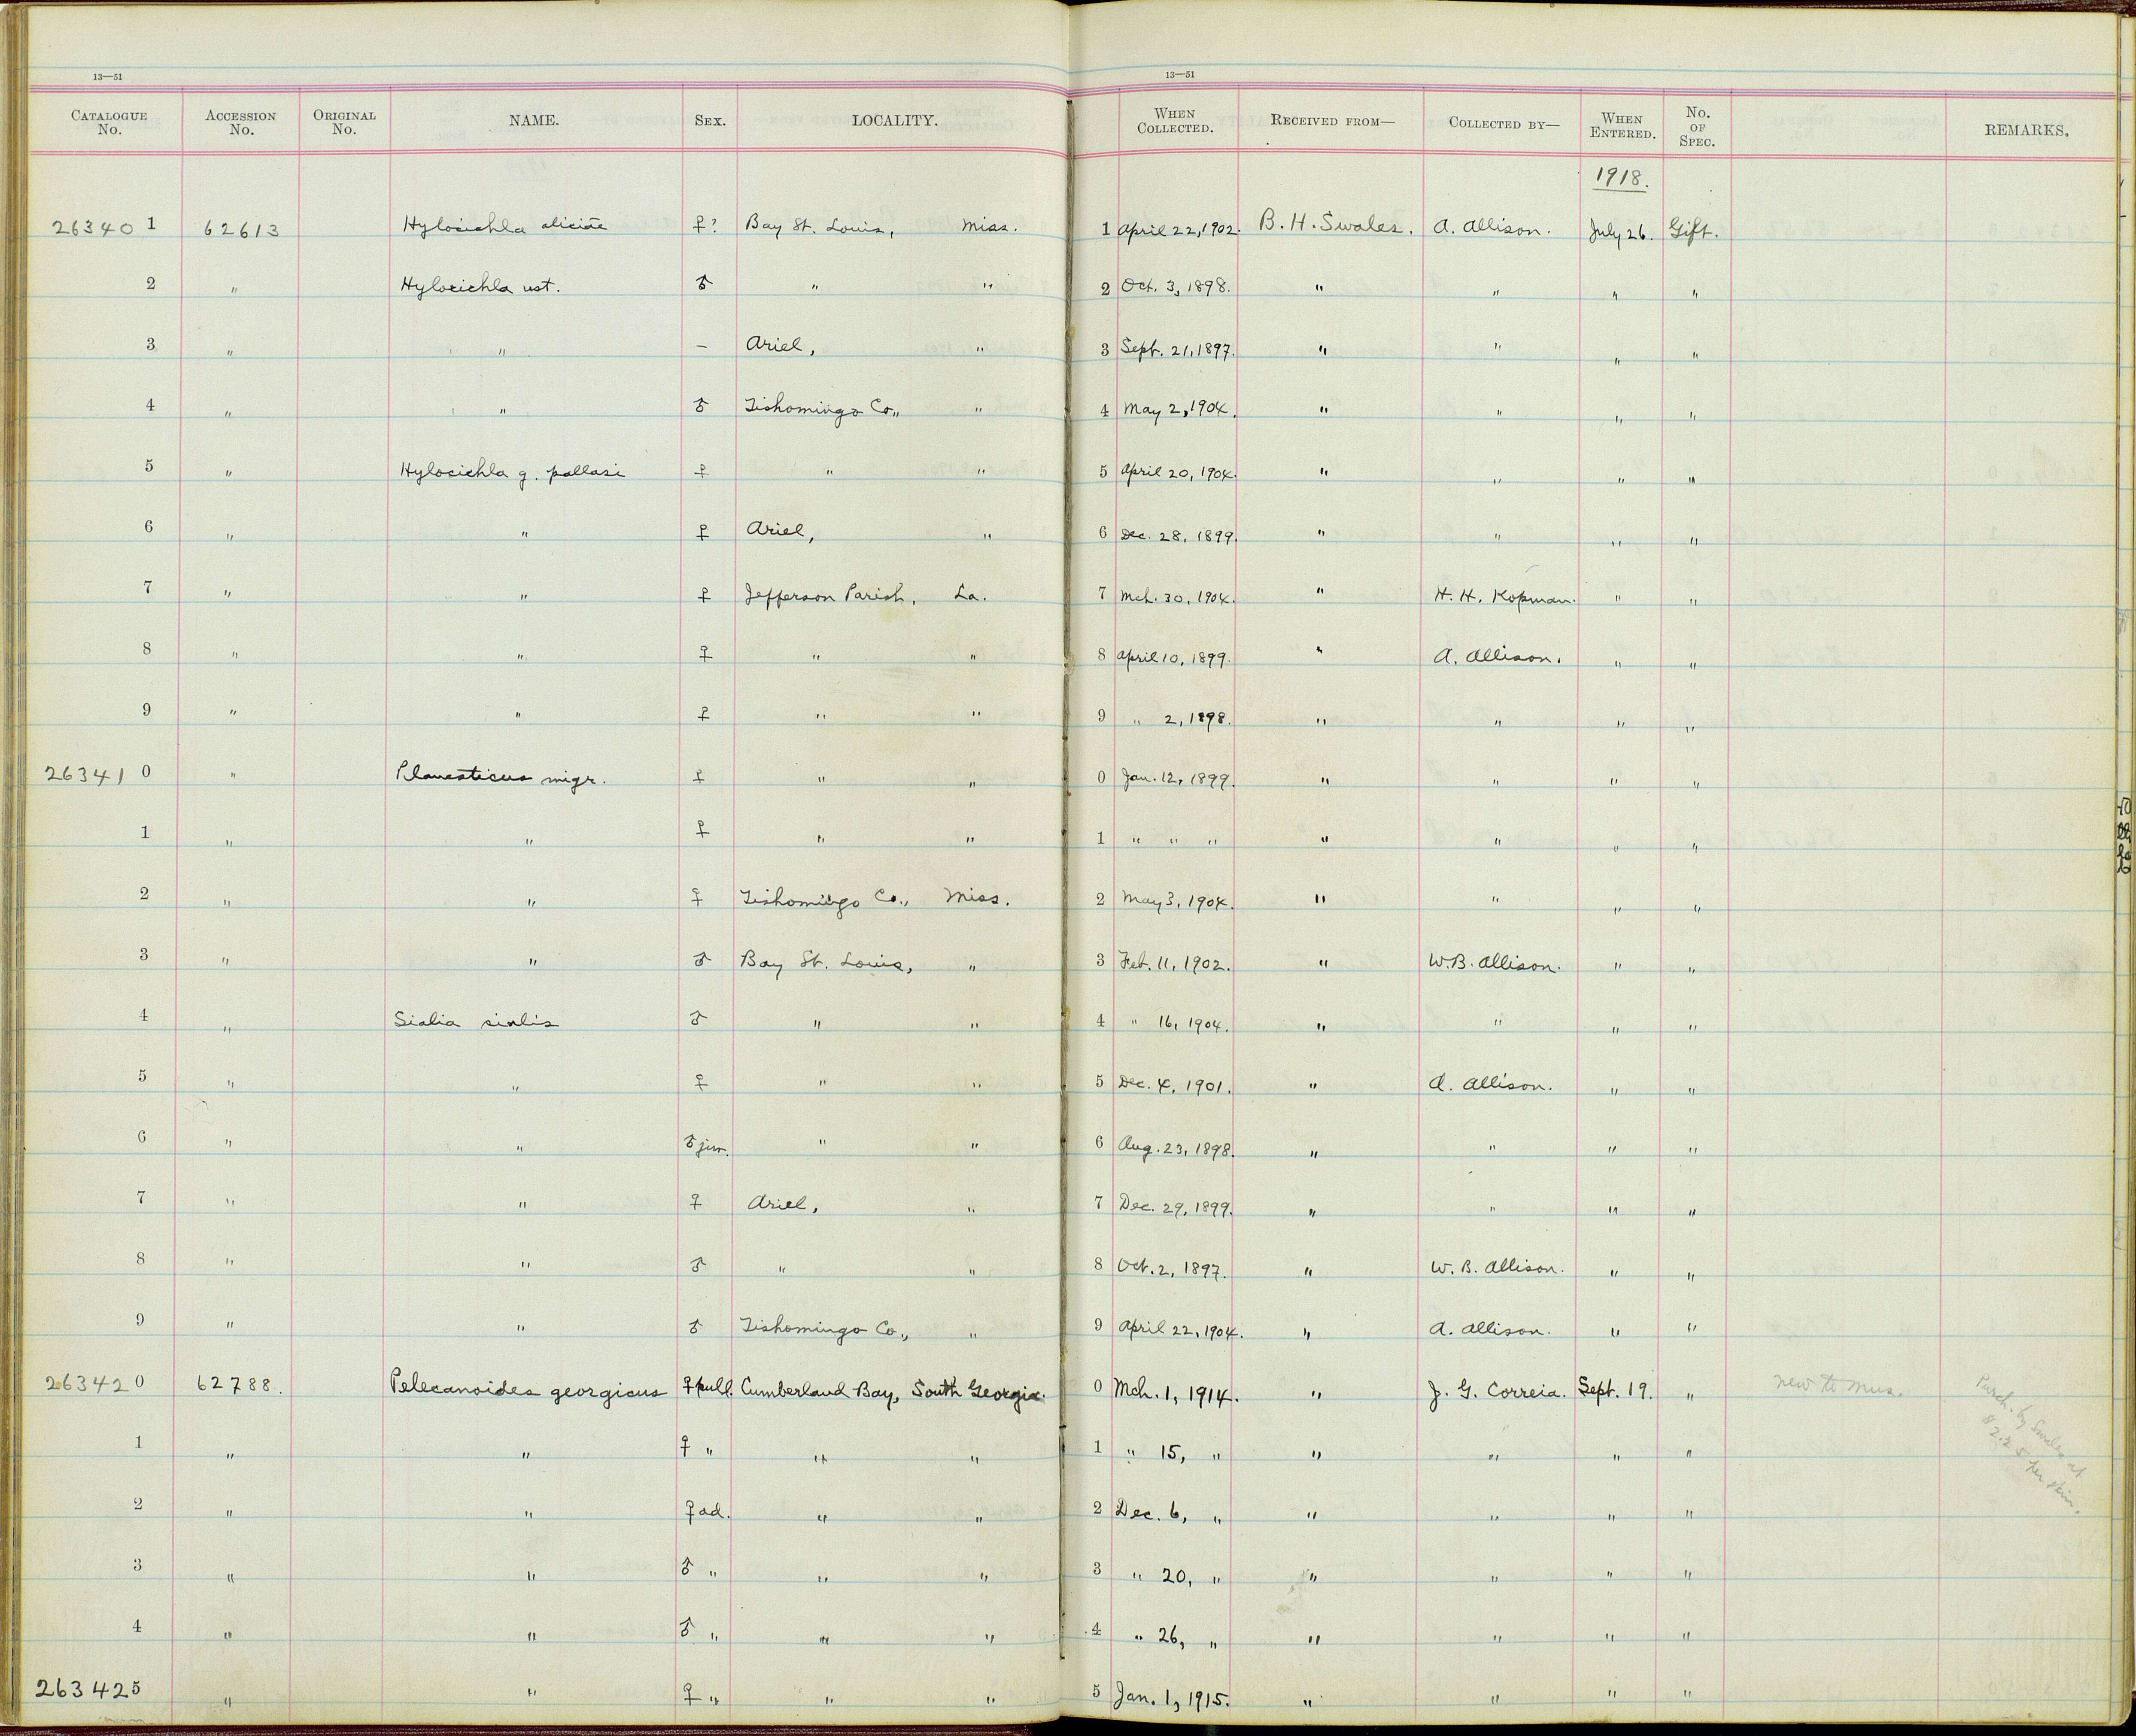 13—51 13—51
CATALOGUE No. ACCESSION No. ORIGINAL No. NAME. SEX. LOCALITY. WHEN COLLECTED. RECEIVED FROM— COLLECTED BY— WHEN ENTERED. No. OF SPEC. REMARKS.
1918.
26340 1 62613 Hylocichla aliciae ♀? Bay St. Louis, Miss. 1 April 22, 1902. B. H. Swales. A. Allison. July 26. Gift.
2 " Hylocichla ust. ♂ " " 2 Oct. 3, 1898. " " " "
3 " " – Ariel, " 3 Sept. 21, 1897. " " " "
4 " " ♂ Tishomingo Co., " 4 May 2, 1904. " " " "
5 " Hylocichla g. pallasi ♀ " " 5 April 20, 1904. " " " "
6 " " ♀ Ariel, " 6 Dec. 28, 1899. " " " "
7 " " ♀ Jefferson Parish, La. 7 Mch. 30, 1904. " H. H. Kopman. " "
8 " " ♀ " " 8 April 10, 1899. " A. Allison. " "
9 " " ♀ " " 9 " 2, 1898. " " " "
26341 0 " Planesticus migr. ♀ " " 0 Jan. 12, 1899. " " " "
1 " " ♀ " " 1 " " " " " " "
2 " " ♀ Tishomingo Co., Miss. 2 May 3, 1904. " " " "
3 " " ♂ Bay St. Louis, " 3 Feb. 11, 1902. " W.B. Allison. " "
4 " Sialia sialis ♂ " " 4 " 16, 1904. " " " "
5 " " ♀ " " 5 Dec. 4, 1901. " A. Allison. " "
6 " " ♂ juv. " " 6 Aug. 23, 1898. " " " "
7 " " ♀ Ariel, " 7 Dec. 29, 1899. " " " "
8 " " ♂ " " 8 Oct. 2, 1897. " W. B. Allison. " "
9 " " ♂ Tishomingo Co., " 9 April 22, 1904. " A. Allison. " "
26342 0 62788. Pelecanoides georgicus ♀ pull. Cumberland Bay, South Georgia. 0 Mch. 1, 1914. " J. G. Correia. Sept. 19. " new to mus. Purch. by Swales at
$2.25 per skin.
1 " " ♀ " " " 1 " 15, " " " " "
2 " " ♀ ad. " " 2 Dec. 6, " " " " "
3 " " ♂ " " " 3 " 20, " " " " "
4 " " ♂ " " " 4 " 26, " " " " "
263425 " " ♀ " " " 5 Jan. 1, 1915. " " " "